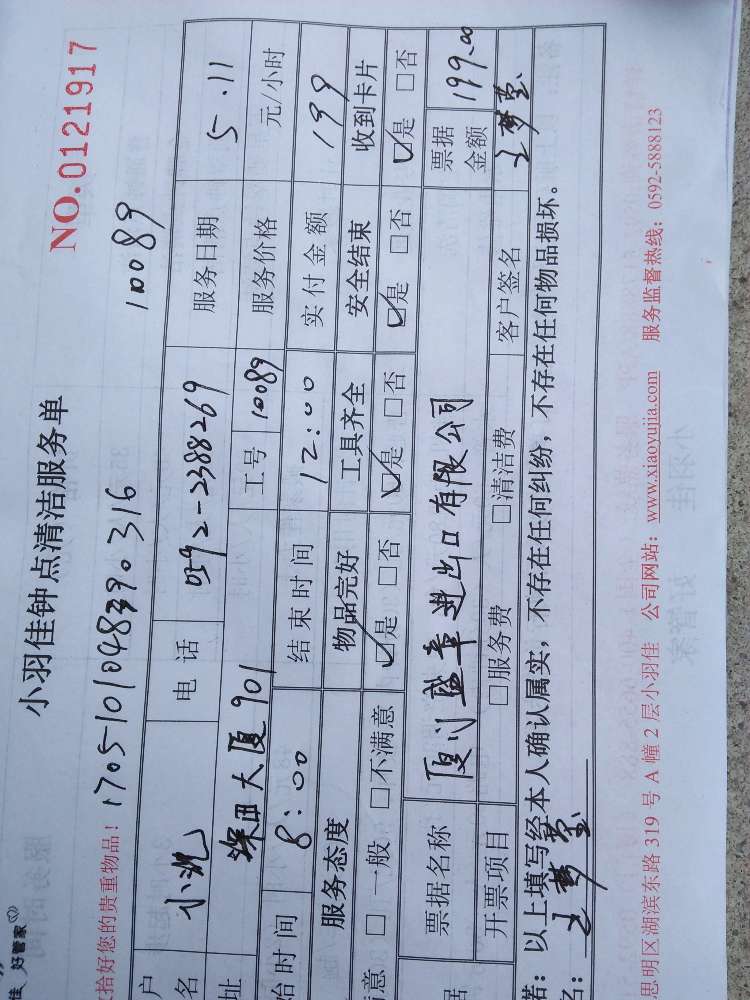 佳 好管家
小羽佳钟点清洁服务单
NO.0121917
拾好您的贵重物品! 10089
户名 小沈 电话 0592-2388269 服务日期 5.11
址 深田大厦901 工号 10089 服务价格 元/小时
始时间 8:00 结束时间 12:00 实付金额 199
服务态度 物品完好 工具齐全 安全结束 收到卡片
满意 □一般 □不满意 ☑是 □否 ☑是 □否 ☑是 □否 ☑是 □否
据 票据名称 厦门盛章进出口有限公司 票据金额 199.00
开票项目 □服务费 □清洁费 客户签名 王梦莹
诺:以上填写经本人确认属实,不存在任何纠纷,不存在任何物品损坏。
名: 王梦莹
思明区湖滨东路 319 号 A 幢 2 层小羽佳 公司网站:www.xiaoyujia.com 服务监督热线:0592-5888123